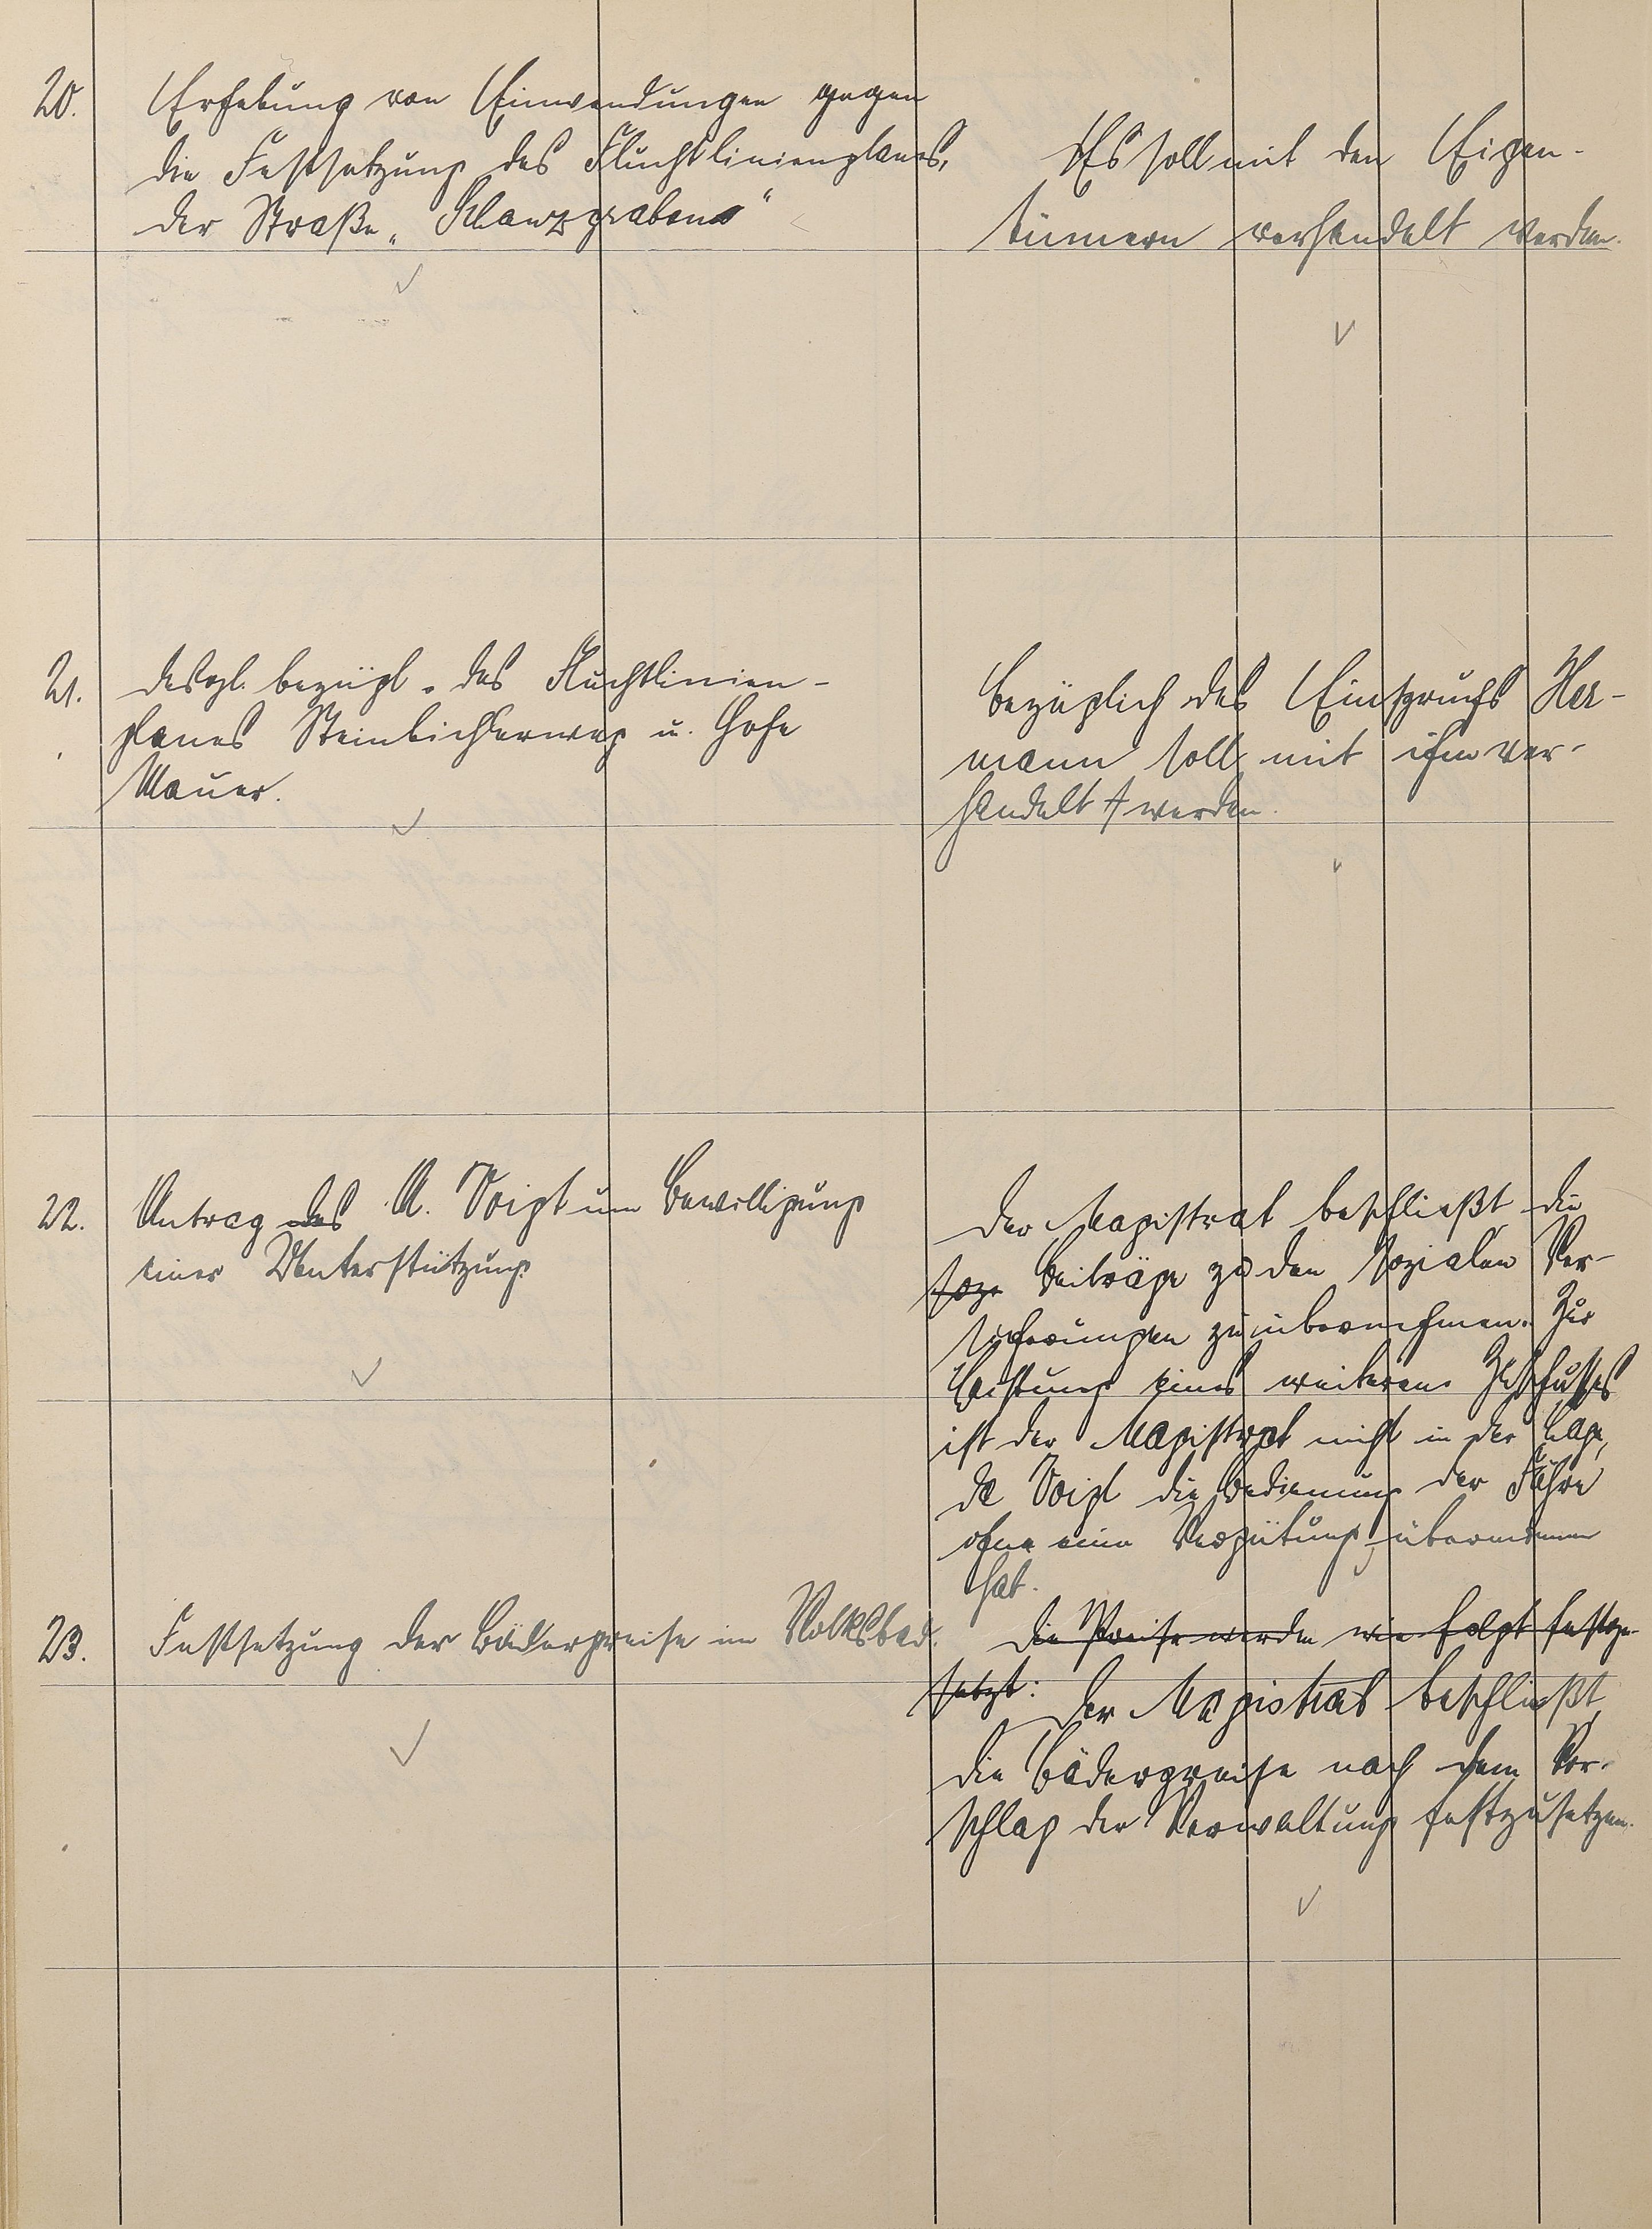 20. Erhebung von Einwendungen gegen
die Festsetzung des Fluchtlinienplanes,
der Straße „Schanzgraben“
Es soll mit den Eigen-
tümern verhandelt werden.
21. desgl. bezügl. des Fluchtlinien-
planes Steinbichlerweg u. Hohe
Mauer.
Bezüglich des Einspruchs Her-
mann soll mit ihm ver-
handelt werden.
22. Antrag des A. Voigt um Bewilligung
einer Unterstützung.
Der Magistrat beschließt, die
soz. Beiträge zu den sozialen Ver-
sicherungen zu übernehmen. Zur
Leistung eines weiteren Zuschusses
ist der Magistrat nicht in der Lage,
da Voigt die Bedienung der Fähre
ohne eine Vergütung übernommen
hat.
23. Festsetzung der Bäderpreise im Volksbad.
Die Preise werden wie folgt festge-
setzt: Der Magistrat beschließt,
die Bäderpreise nach dem Vor-
schlag der Verwaltung festzusetzen.